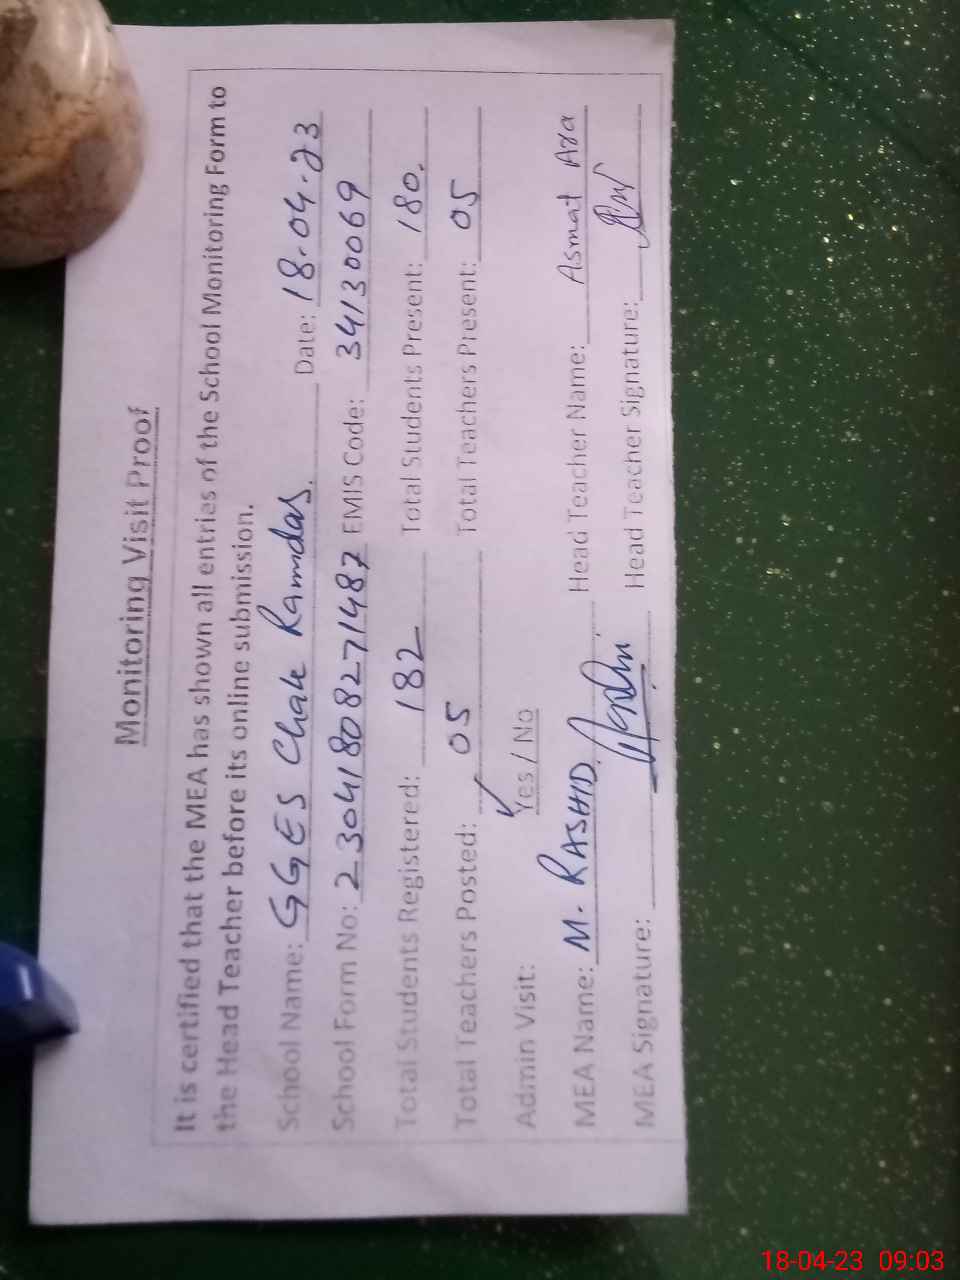 Monitoring Visit Proof
It is certified that the MEA has shown all entries of the School Monitoring Form to
the Head Teacher before its online submission.
School Name: GGES Chak Ramdas. Date: 18.04.23
School Form No: 23041808271487 EMIS Code: 34130069
Total Students Registered: 182 Total Students Present: 180.
Total Teachers Posted: 05 Total Teachers Present: 05
Admin Visit: Yes / No
MEA Name: M. RASHID Head Teacher Name: Asmat Ara
MEA Signature: Head Teacher Signature:
18-04-23 09:03